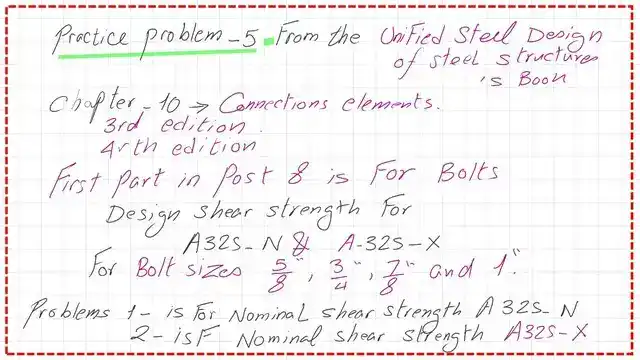 Practice problem-5 From the Unified Steel Design
of steel structures
's Boon
Chapter-10 → Connections elements.
3rd edition.
4rth edition
First Part in Post 8 is For Bolts
Design shear strength For
A325-N & A-325-X
For Bolt sizes 5/8", 3/4", 7/8" and 1".
Problems 1- is For Nominal shear strength A325-N
2-isF Nominal shear strength A325-X